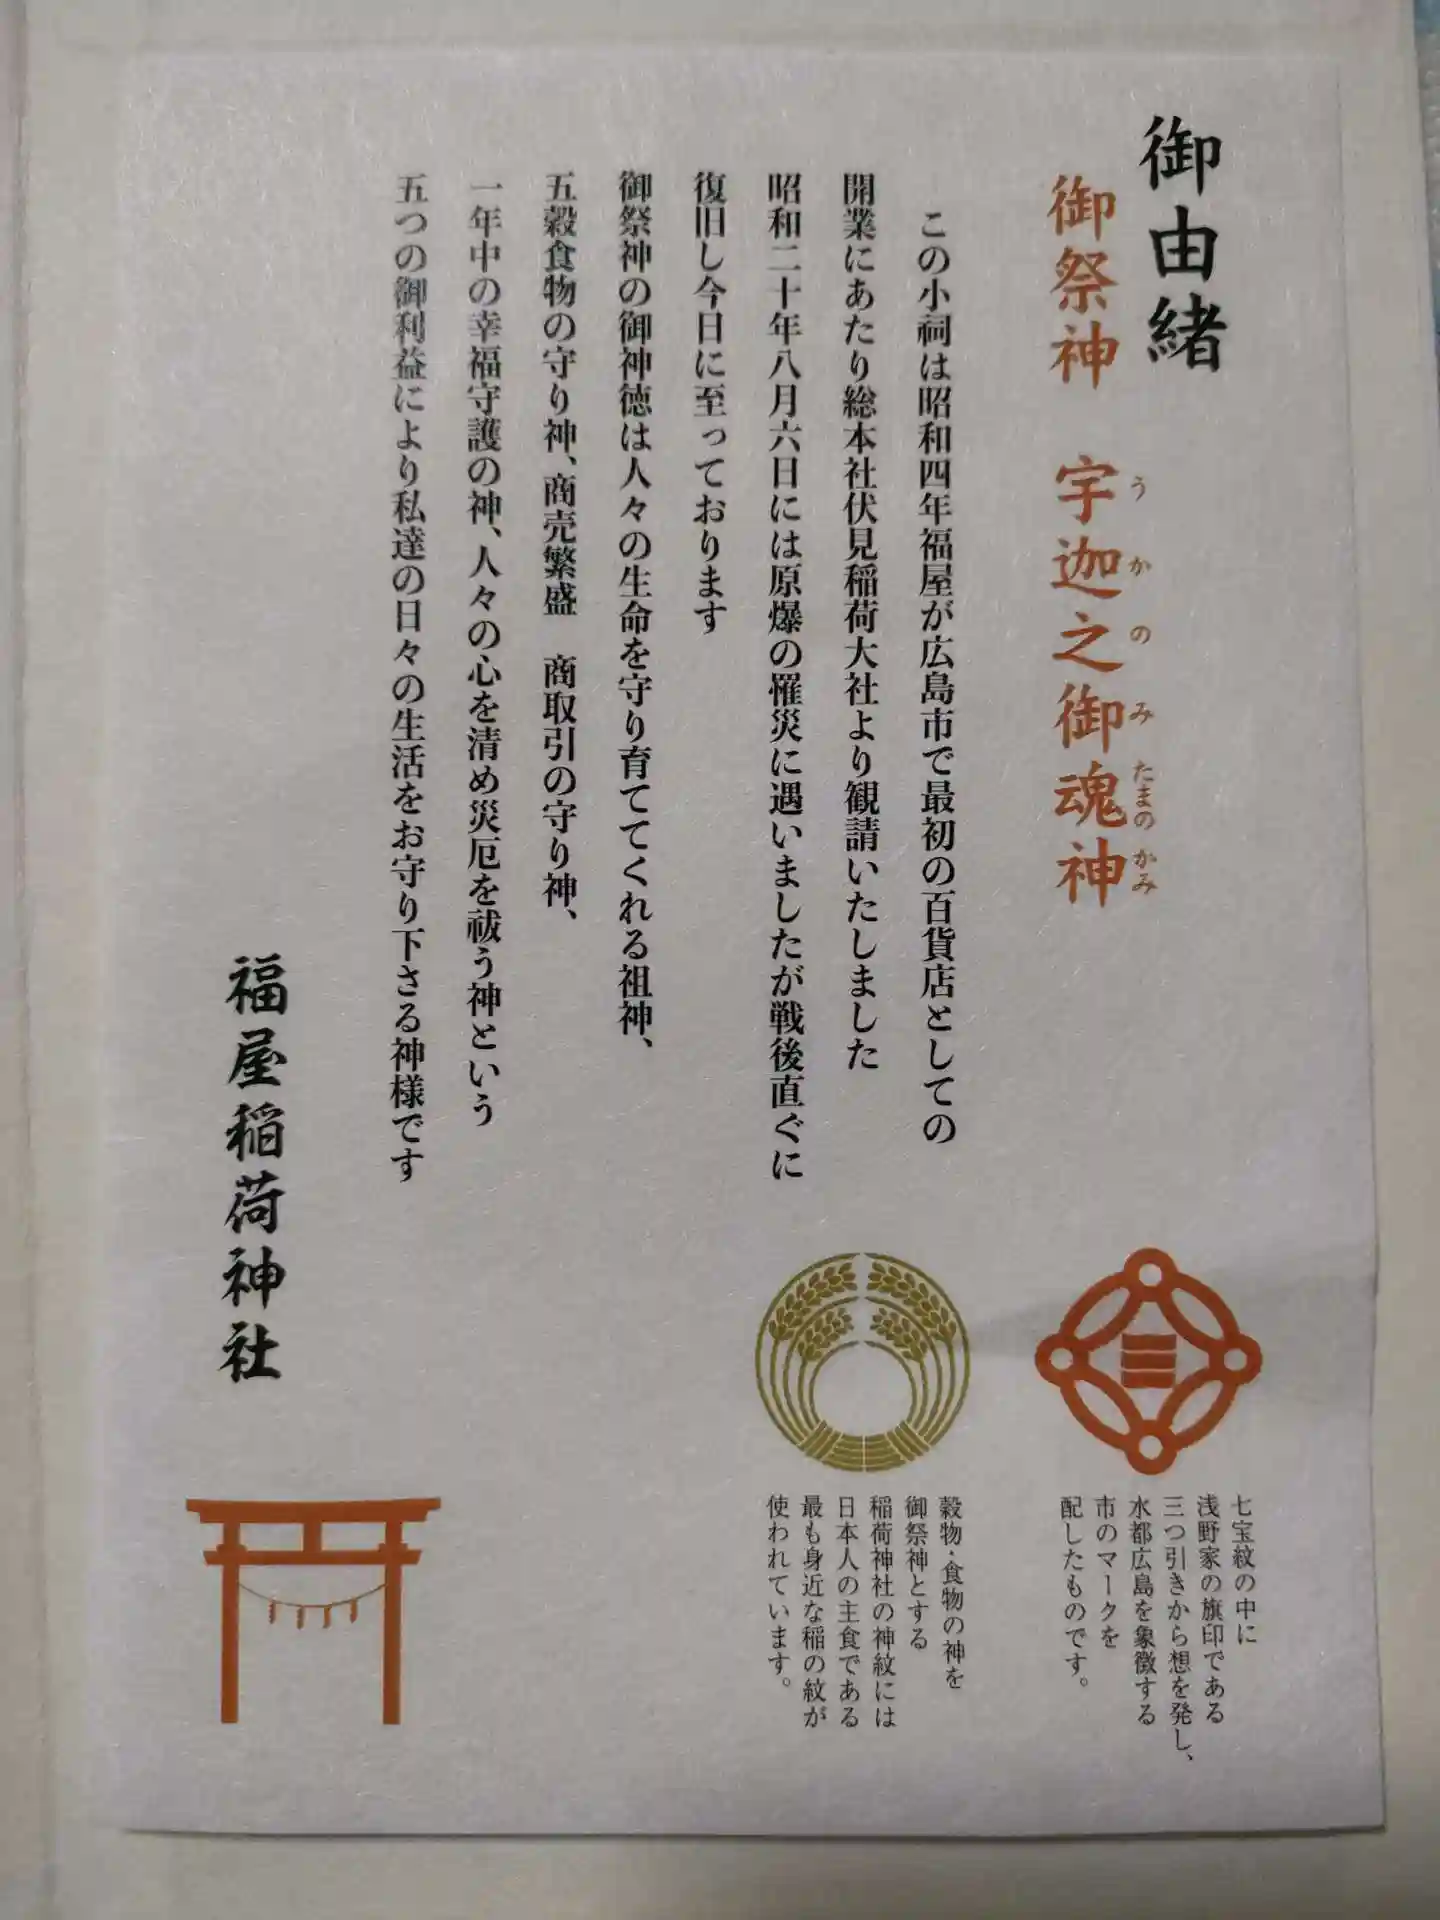 御由緒
御祭神 宇迦之御魂神
うかのみたまのかみ
この小祠は昭和四年福屋が広島市で最初の百貨店としての
開業にあたり総本社伏見稲荷大社より観請いたしました
昭和二十年八月六日には原爆の罹災に遇いましたが戦後直ぐに
復旧し今日に至っております
御祭神の御神徳は人々の生命を守り育ててくれる祖神、
五穀食物の守り神、商売繁盛 商取引の守り神、
一年中の幸福守護の神、人々の心を清め災厄を祓う神という
五つの御利益により私達の日々の生活をお守り下さる神様です
福屋稲荷神社
七宝紋の中に
浅野家の旗印である
三つ引きから想を発し、
水都広島を象徴する
市のマークを
配したものです。
穀物・食物の神を
御祭神とする
稲荷神社の神紋には
日本人の主食である
最も身近な稲の紋が
使われています。